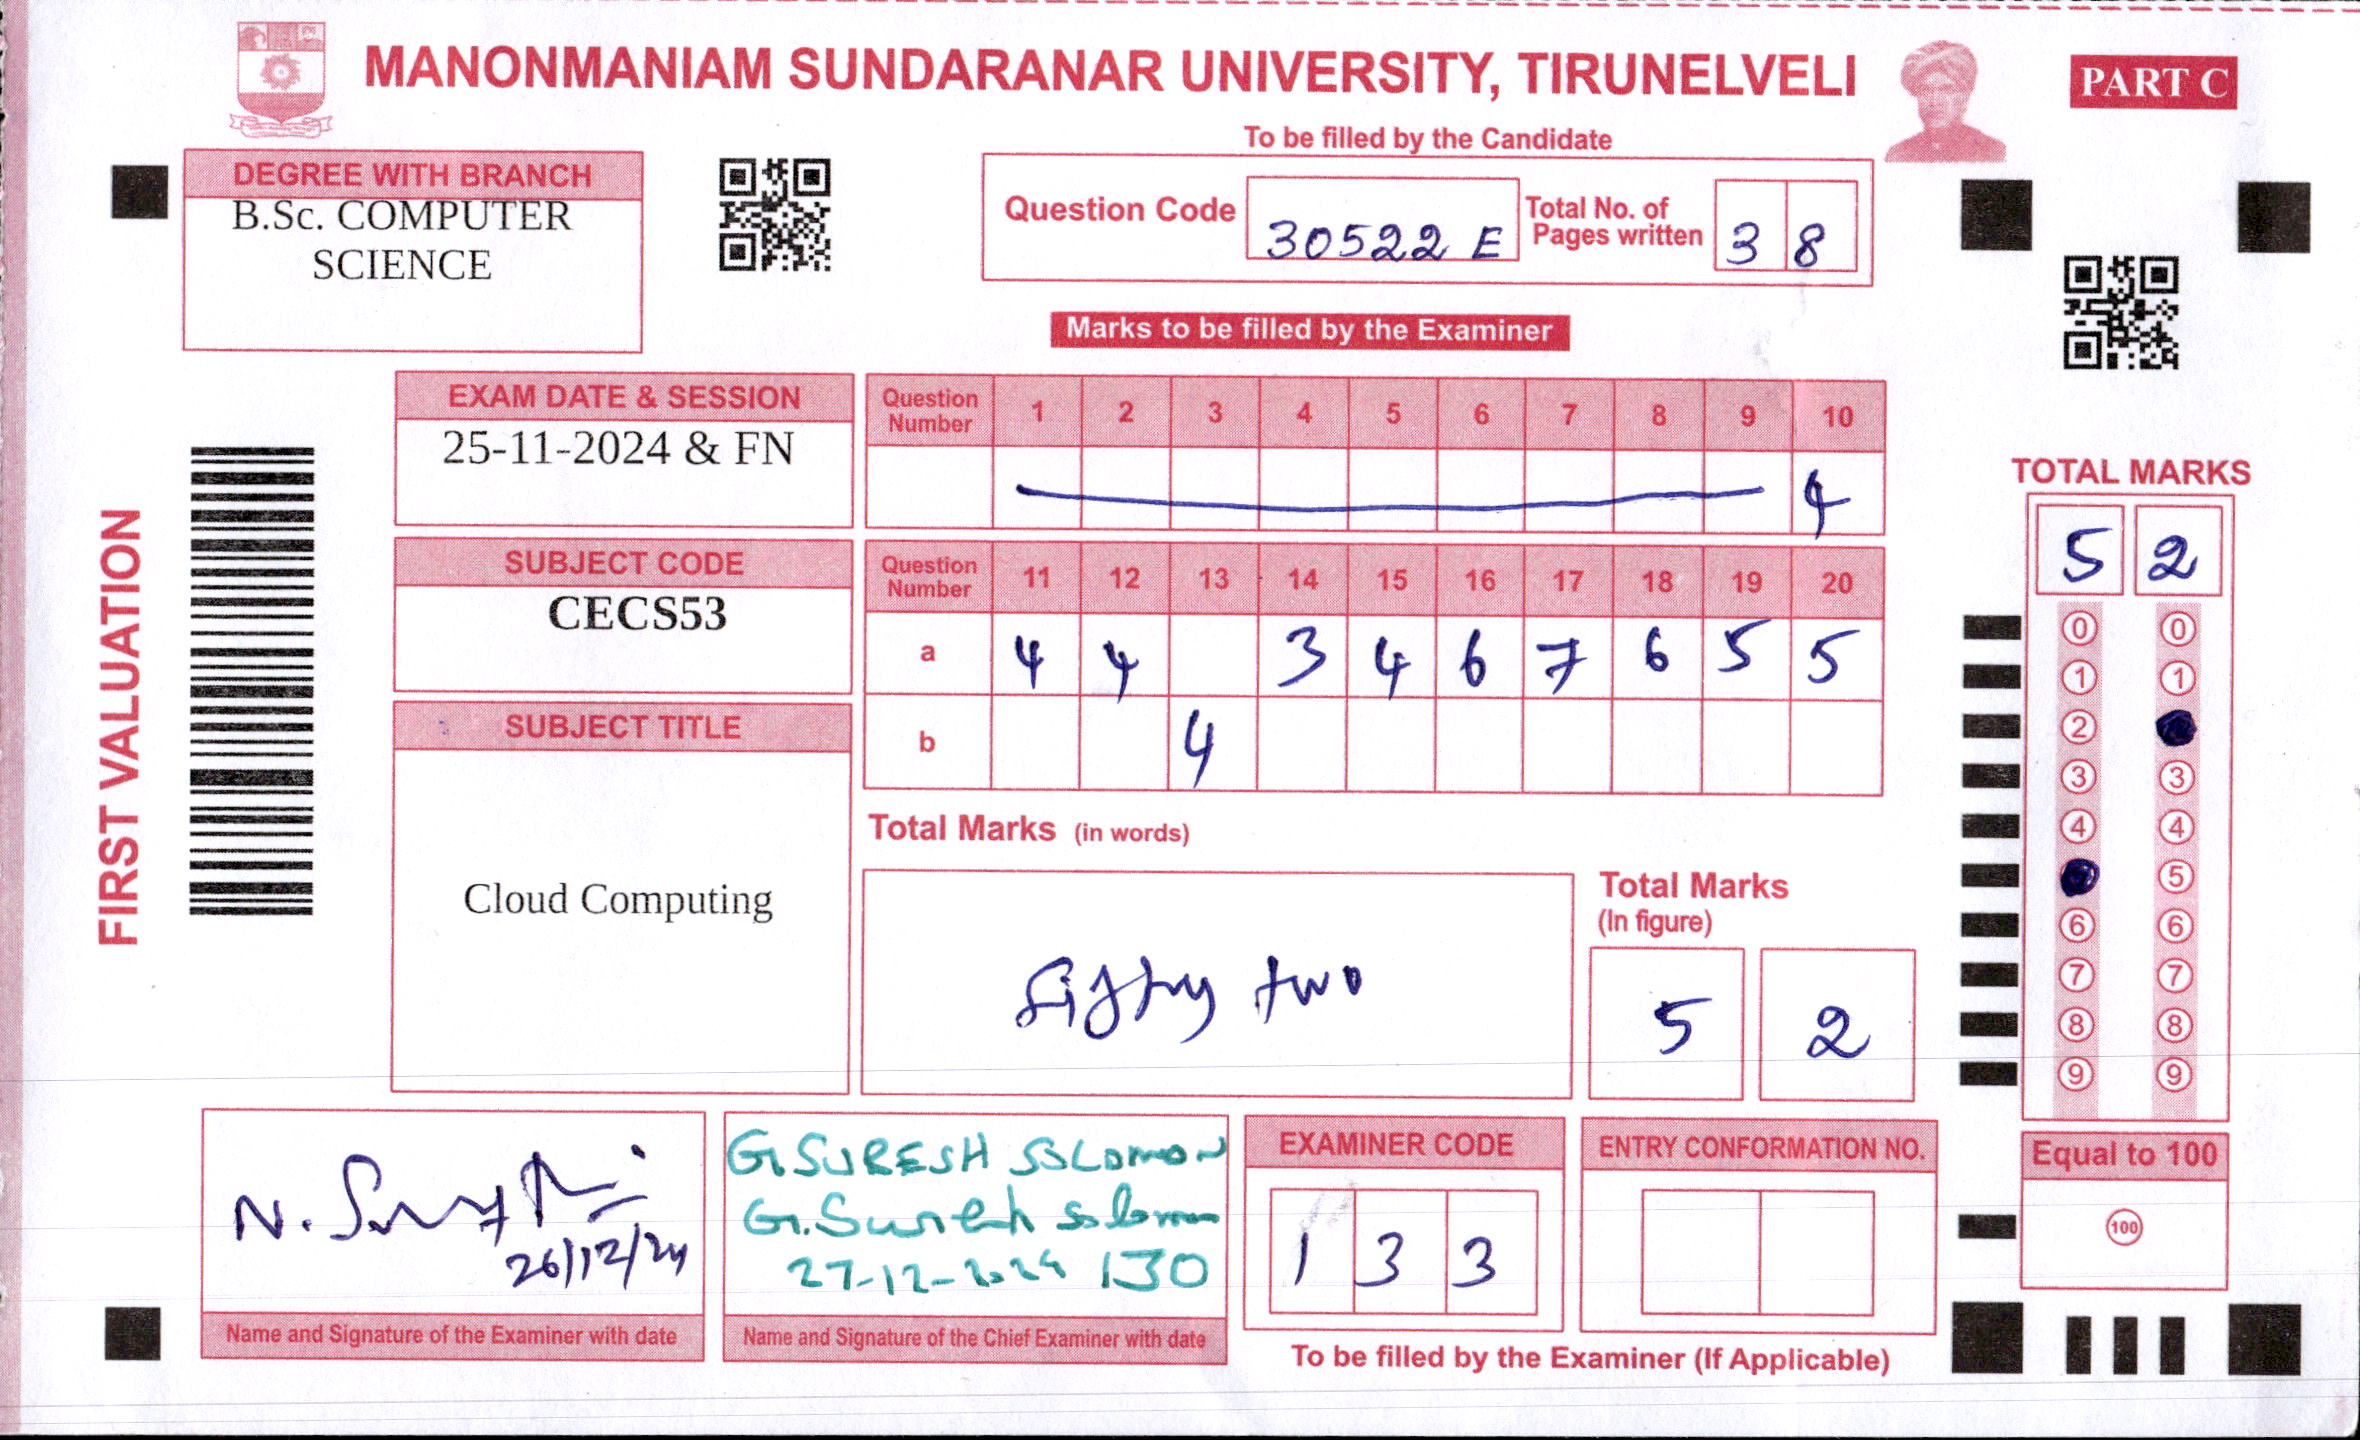 MANONMANIAM SUNDARANAR UNIVERSITY, TIRUNELVELI
PART C
To be filled by the Candidate
DEGREE WITH BRANCH
B.Sc. COMPUTER
SCIENCE
Question Code 30522 E
Total No. of
Pages written 3 8
Marks to be filled by the Examiner
FIRST VALUATION
EXAM DATE & SESSION
25-11-2024 & FN
Question
Number 1 2 3 4 5 6 7 8 9 10
4
SUBJECT CODE
CECS53
Question
Number 11 12 13 14 15 16 17 18 19 20
a 4 4 3 4 6 7 6 5 5
b 4
SUBJECT TITLE
Cloud Computing
Total Marks (in words)
fifty two
Total Marks
(In figure)
5 2
TOTAL MARKS
5 2
0 0
1 1
2
3 3
4 4
5
6 6
7 7
8 8
9 9
Equal to 100
100
N.
26/12/24
Name and Signature of the Examiner with date
G. SURESH SOLOMON
G. Suresh Solomon
27-12-2024 130
Name and Signature of the Chief Examiner with date
EXAMINER CODE
1 3 3
ENTRY CONFORMATION NO.
To be filled by the Examiner (If Applicable)